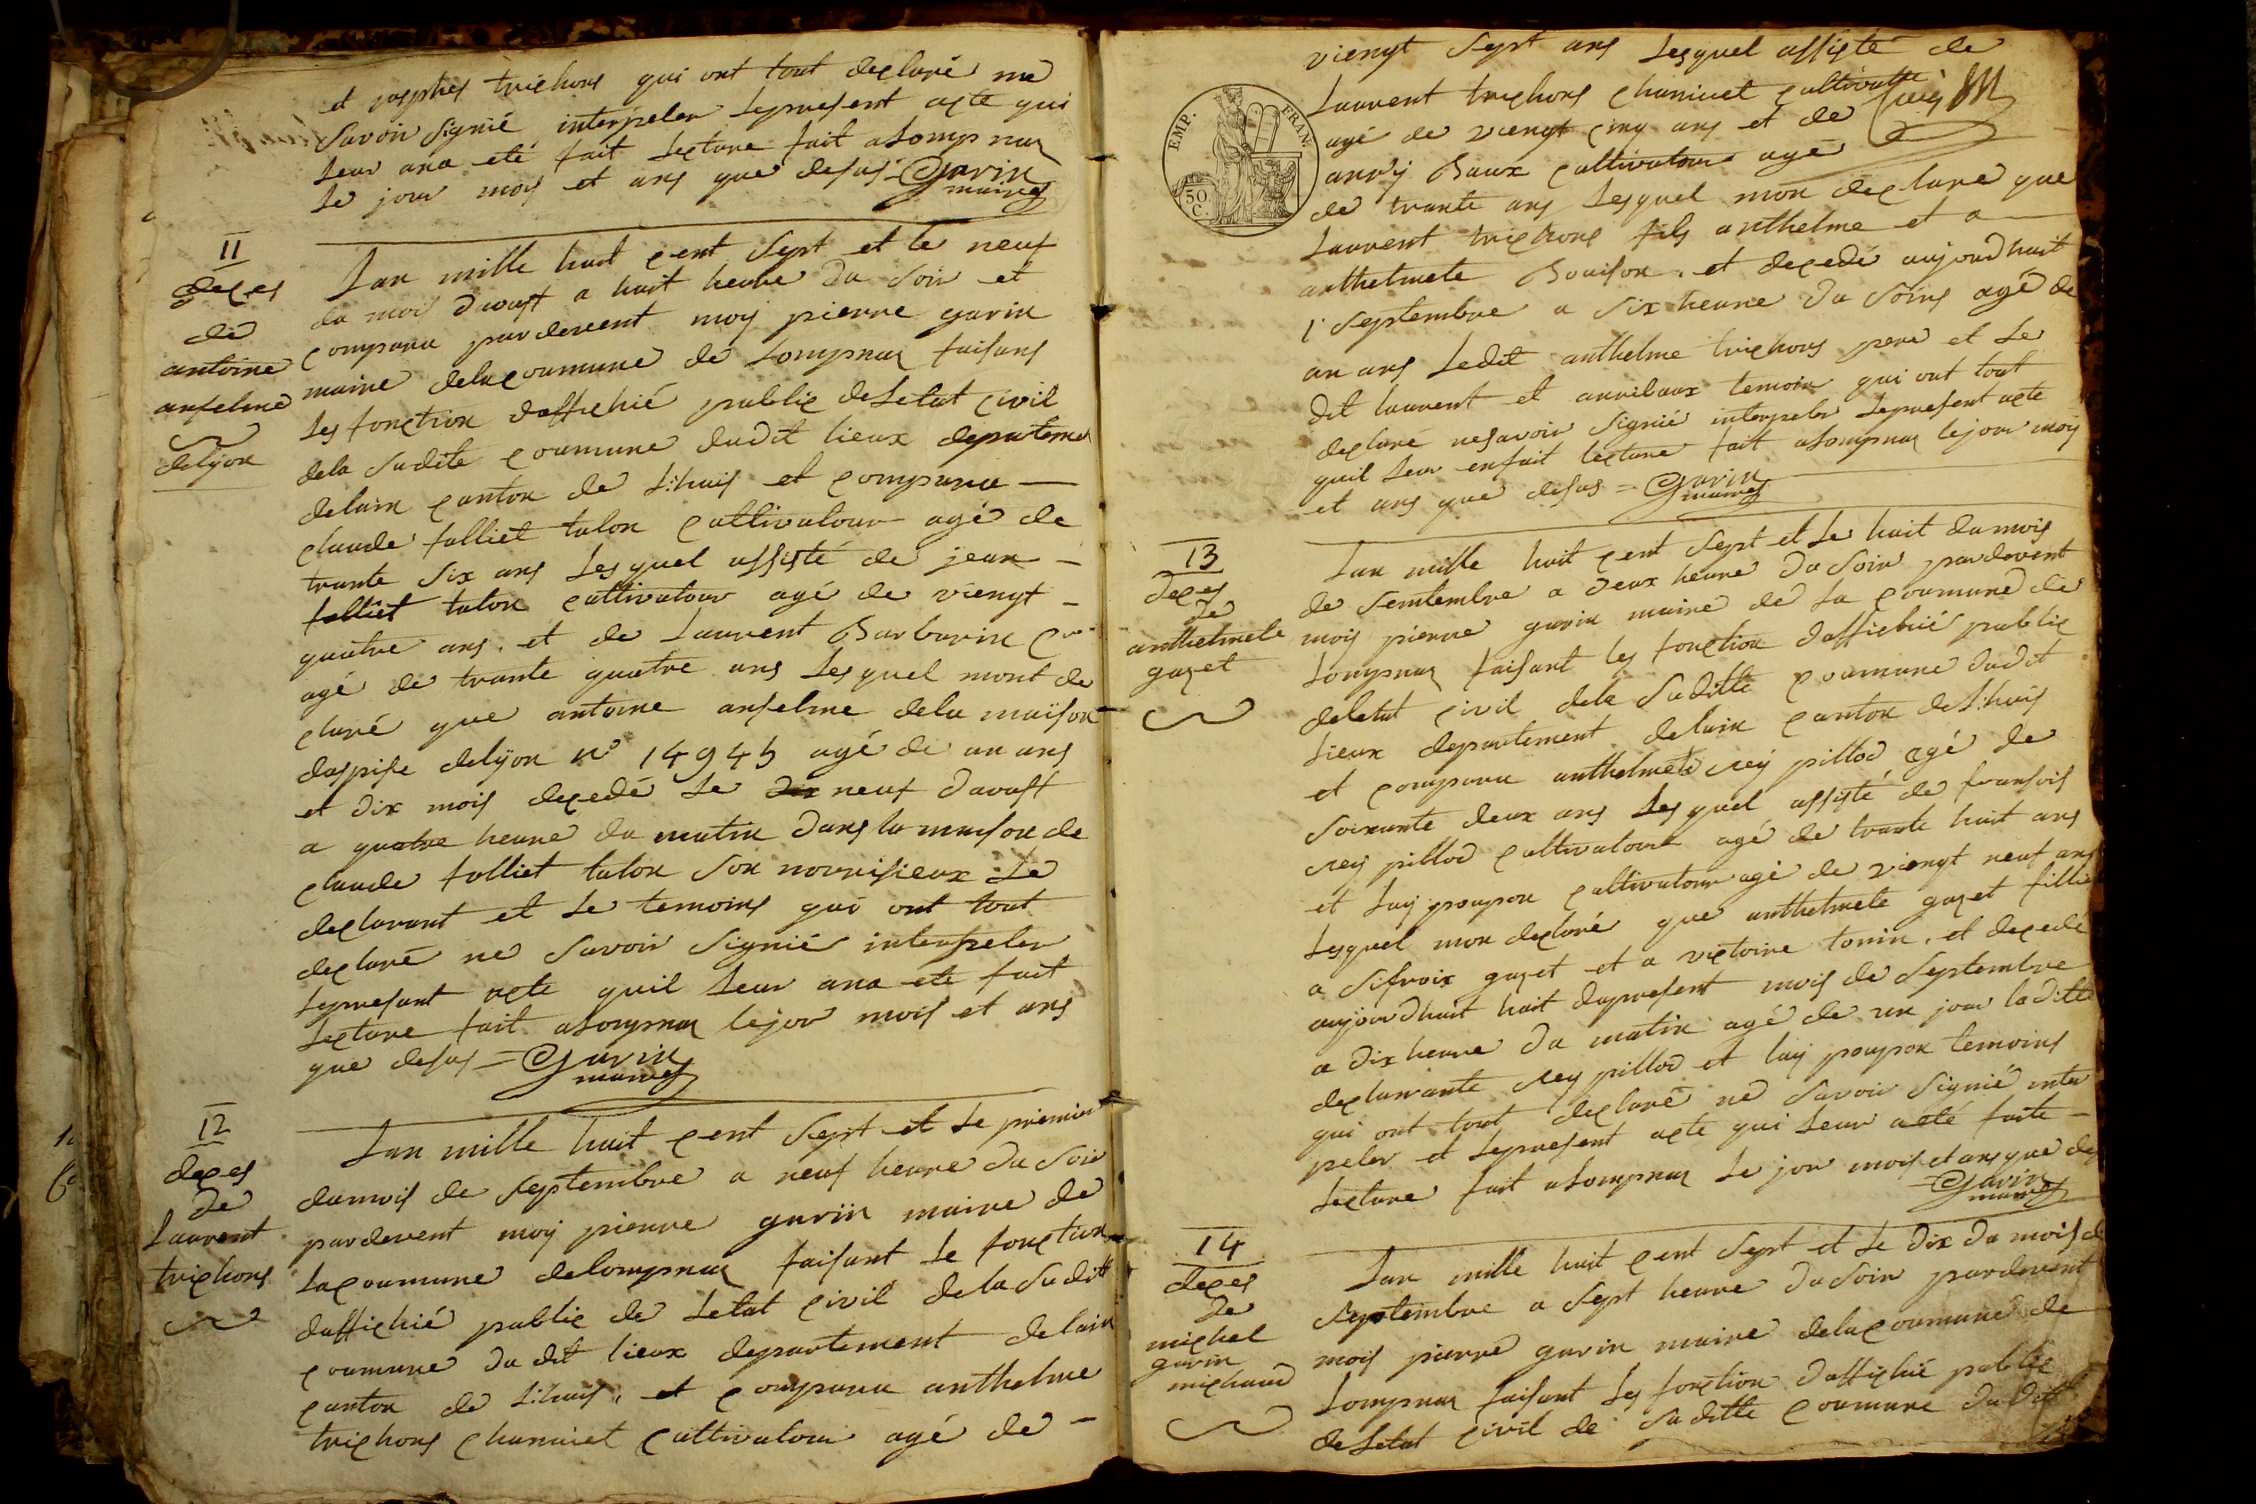 et josephes trichons qui ont tout declaré ne
savoir signié interpeler lepresent acte qui
leur ana eté fait lecture fait a lompnaz
le jour mois et ans que desus = Gavrin
maire
11
deces
de
antoine
anselme
delyon
Lan mille huit cent sept et le neuf
du mois daoust a huit heure du soir et
comparu pardevent moy pierre gavrin
maire dela coumune de lompnaz faisans
les fonction daffichié public deletat civil
dela sudite coumune dudit lieux departemen
delain canton de l:huis et comparu
claude folliet talon cultivatour agé de
trante six ans lesquel assisté de jean
folliet talon cultivatour agé de viengt
quatre ans. et de laurent Barbarin cur
agé de trante quatre ans lesquel mont de
claré que antoine anselme dela maison
dospise delyon n° 14945 agé de un ans
et dix mois decedé le dix neuf daoust
a quatre heure du matin dans la maison de
claude folliet talon son nourisieux le
declarant et le temoins qui ont tout
declaré ne savoir signié interpeler
lepresant acte quil leur ana eté fait
lecture fait a lompnaz lejour mois et ans
que desus = Gavrin
maire
12
deces
de
laurent
trichons
Lan mille huit cent sept et le premier
dumois de septembre a neuf heure du soir
pardevent moy pierre gavrin maire de
la coumune delompnaz faisant le fonction
daffichié public de letat civil dela sudit
coumune dudit lieux departement delain
canton de l:huis, et comparu anthelme
trichons chaniuet cultivatour agé de
viengt sept ans lesquel assisté de
laurent trichons chaniuet cultivatte
agé de viengt cinq ans et de
anrij Baux cultivatour agé
de trante ans lesquel mon declare que
laurent trichons fils anthelme et a
anthelmete Bouison. et decedé aujourdhuit
1 septembre a six heure du soins agé de
un ans ledit anthelme trichons pere et le
dit laurent et anribaux temoin qui ont tout
declaré nesavoir signié interpeler lepresent acte
quil leur enfait lecture fait a lompnaz lejour moy
et ans que desus = Gavrin
maire
EMP. FRAN.
50
C.
13
deces
de
anthelmete
gazet
Lan mille huit cent sept et le huit du mois
de semtembre a deux heure du soir pardevent
mois pierre gavrin maire de la coumune de
lompnaz faisant les fonction daffichié public
deletat civil dela suditte coumune dudit
lieux departement delain canton de l:huis
et comparu anthelmete rey pillod agé de
soixante deux ans lesquel assisté de fransois
rey pillod cultivatour agé de trante huit ans
et luy poupon cultivatour agé de viengt neuf ans
lesquel mon declaré que anthelmete gazet fillie
a sifroix gazet et a victoire tonin. et decedé
aujourdhuit huit dupresent mois de septembre
a dix heure du matin agé de un jour laditte
declarante rey pillod et luy poupon temoins
qui ont tout declaré ne savoir signié inter
peler et lepresent acte qui leur a eté faite
lecture fait a lompnaz le jour mois et ans que des
Gavrin
maire
14
deces
de
michel
gavrin
michaud
Lan mille huit cent sept et le dix du mois de
septembre a sept heure du soir pardevent
mois pierre gavrin maire dela coumune de
lompnaz faisant les fonction daffichié public
deletat civil de suditte coumune dudit